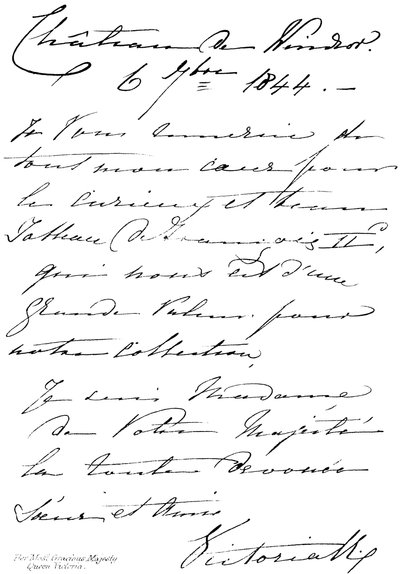 Château de Windsor.
6 9bre 1844. –
Je Vous remercie de
tout mon cœur pour
le curieux et beau
Tableau de François II^d,
qui nous est d'une
grande Valeur pour
notre Collection.
Je suis Madame
de Votre Majesté
la toute devouée
Sœur et Amie
Victoria R.
Her Most Gracious Majesty
Queen Victoria.